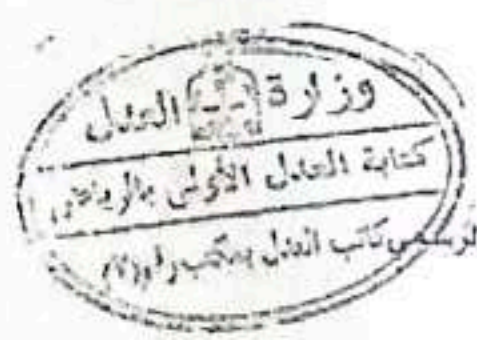 وزارة العدل
كتابة العدل الأولى بالرياض
كاتب العدل بمكتب رقم